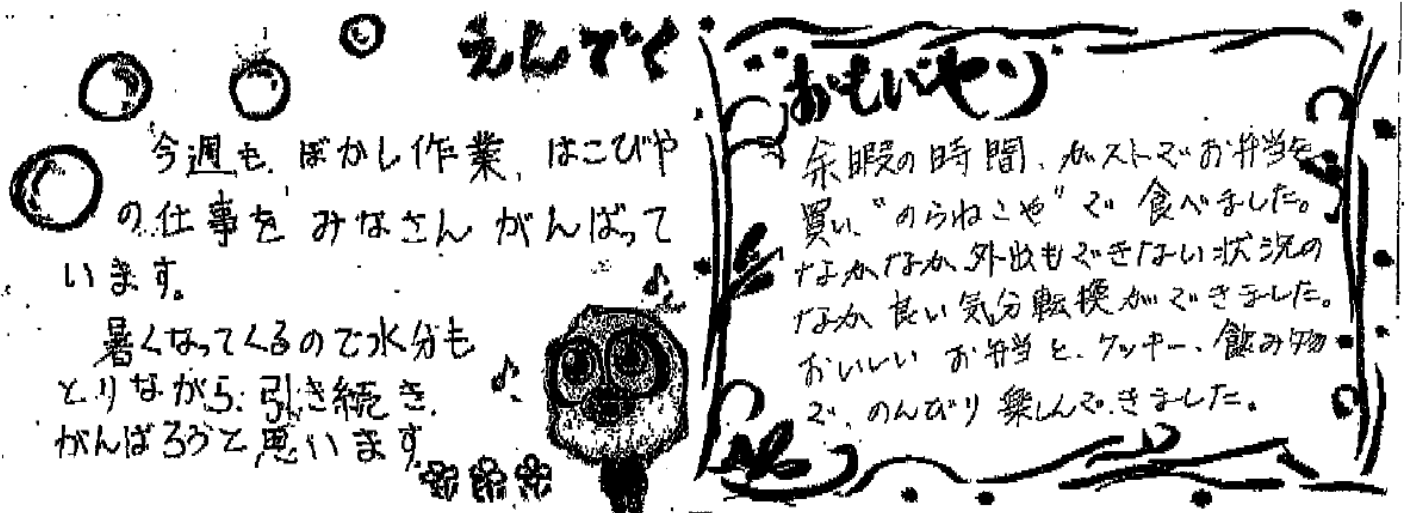 えんでく
今週も、ぼかし作業、はこびや
の仕事を みなさん がんばって
います。
暑くなってくるので水分も
とりながら、引き続き、
がんばろうと思います。
おもいやり
余暇の時間、ガストでお弁当を
買い、“のらねこや”で 食べました。
なかなか、外出もできない状況の
なか、良い気分転換ができました。
おいしい お弁当と、クッキー、飲み物
で、のんびり 楽しんできました。